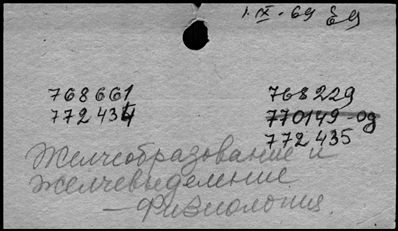 1.IX.69
768661 768229
772434 770149-од
772435
Желчеобразование и
желчевыделение
— Физиология.